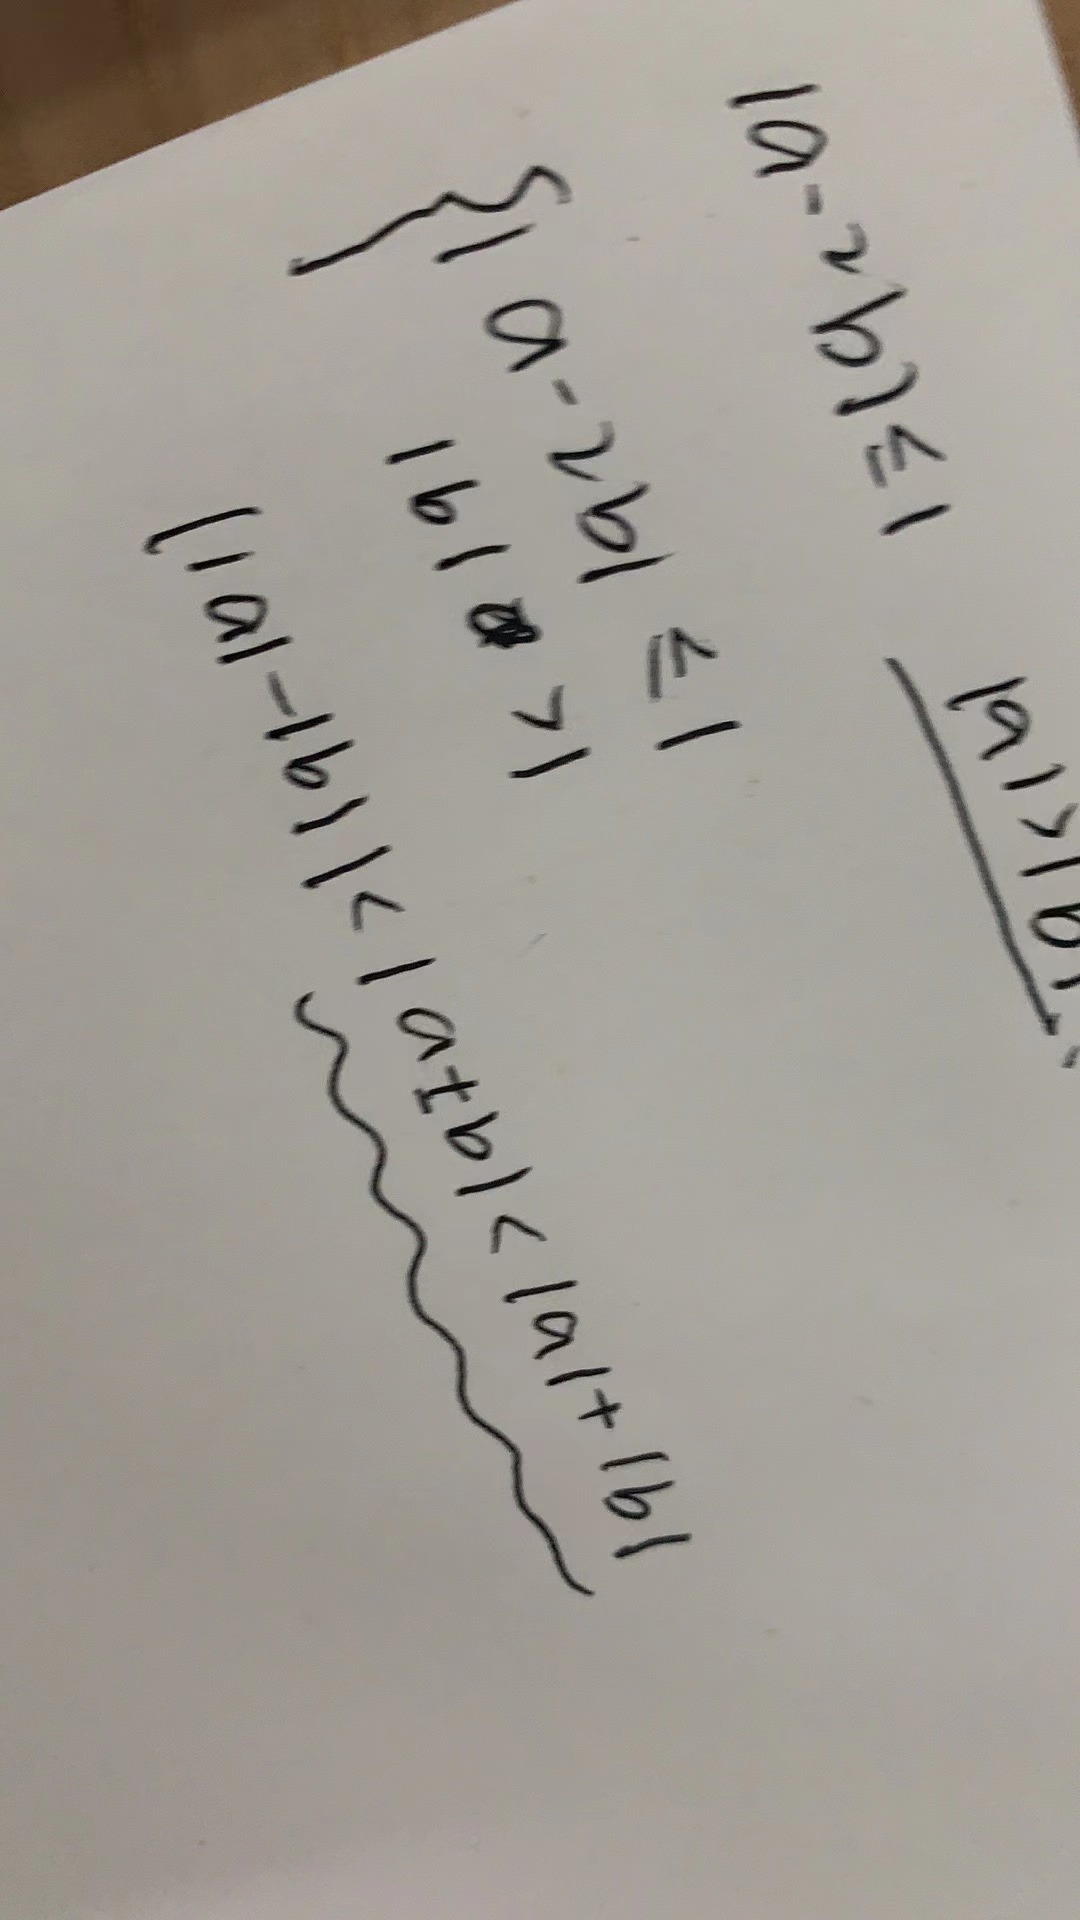 |a-2b|≤1 |a|>|b|.
{|a-2b|≤1
|b|>1
||a|-|b||<|a±b|<|a|+|b|